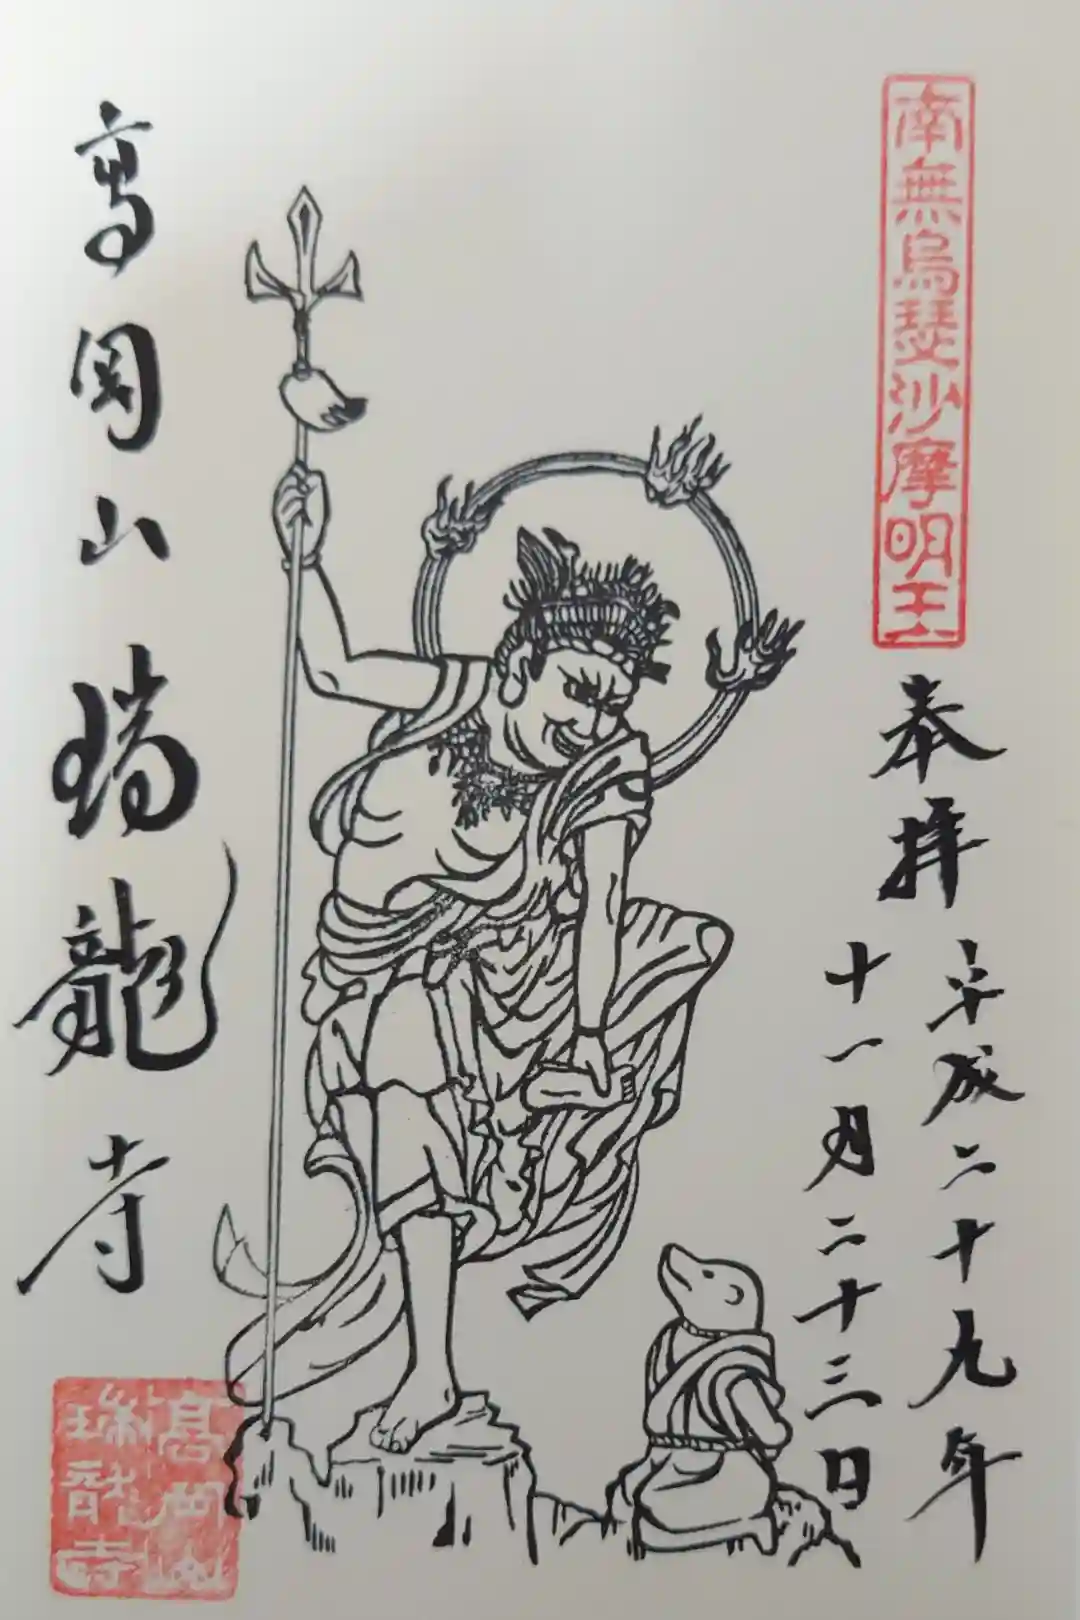 南無烏瑟沙摩明王
奉拝
平成二十九年
十一月二十三日
高岡山瑞龍寺
高岡山
瑞龍寺